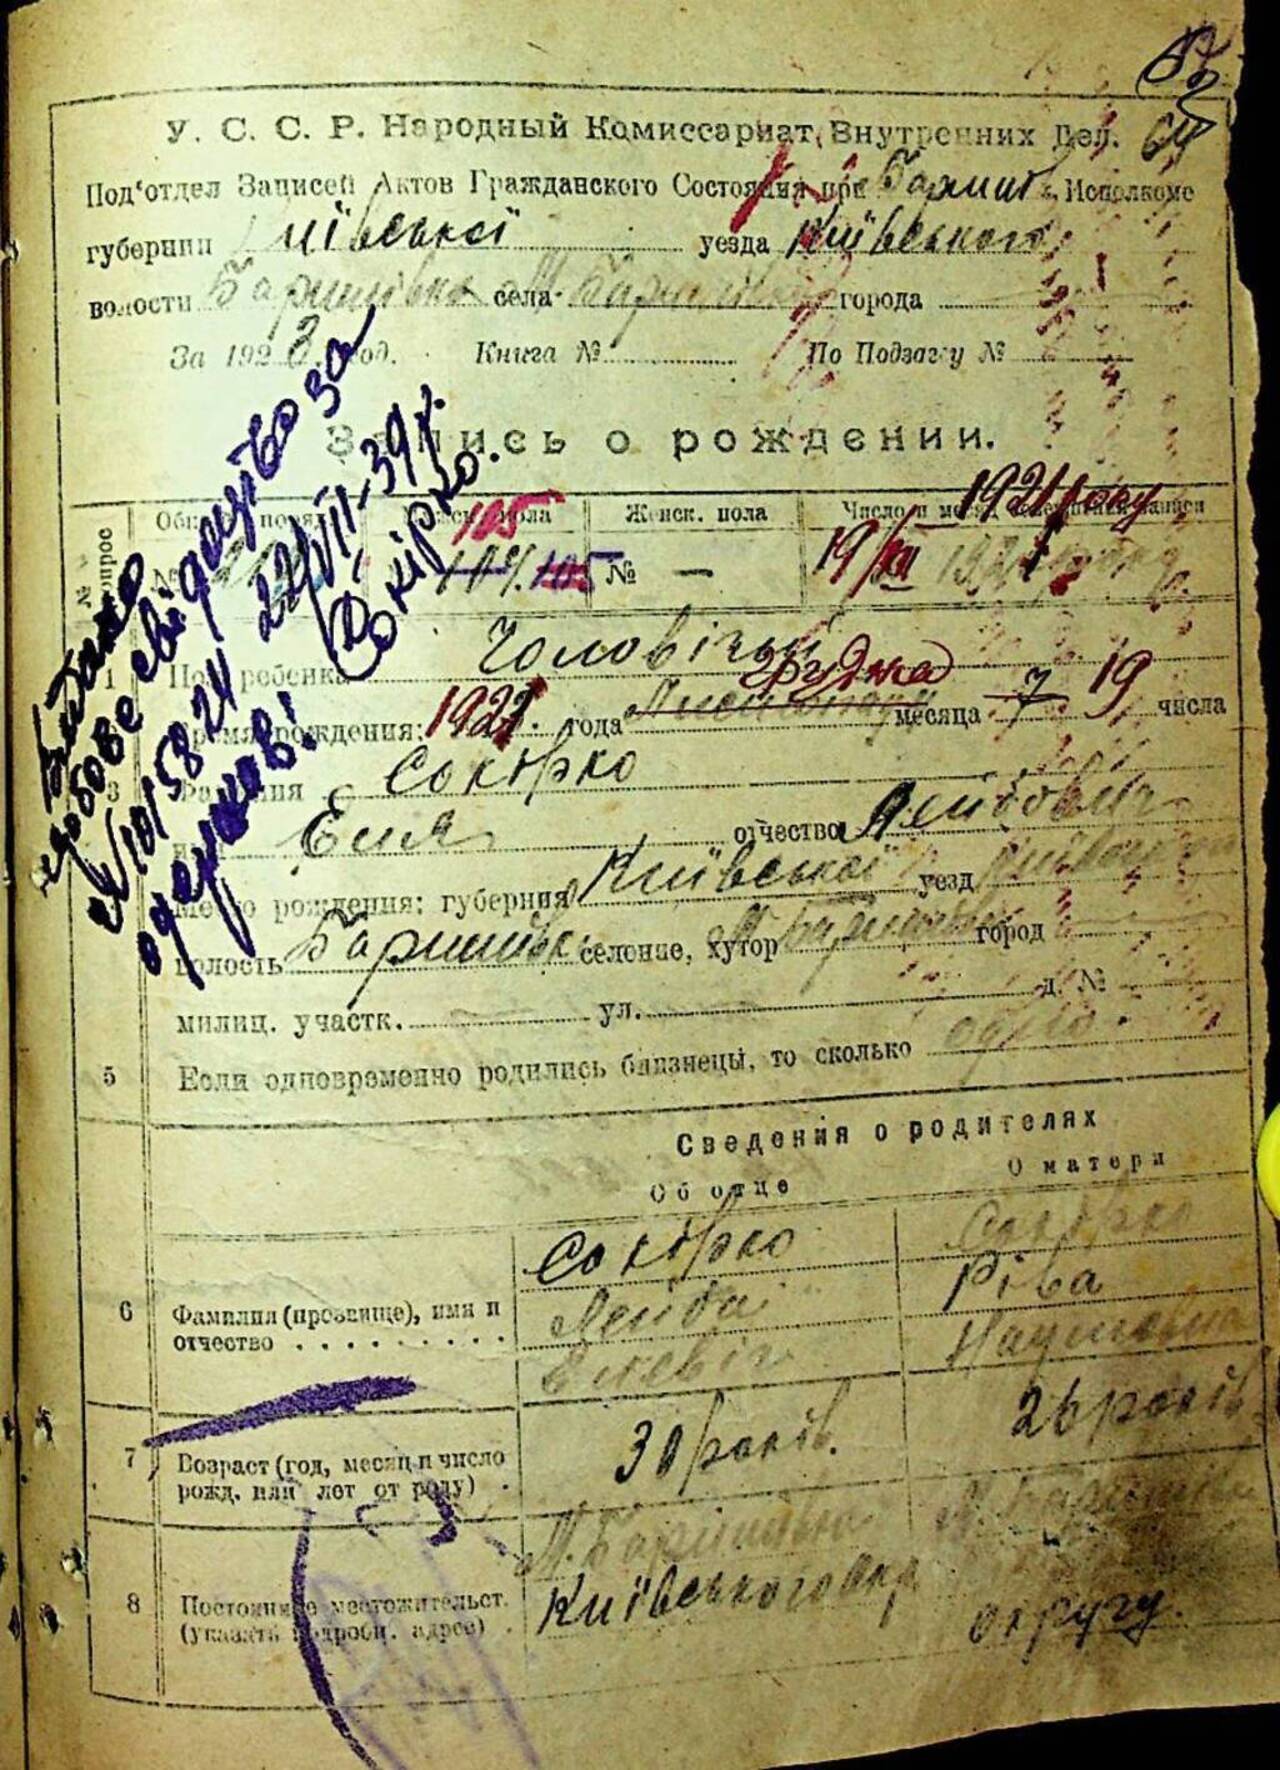 64
У. С. С. Р. Народный Комиссариат Внутренних Дел.
Под'отдел Записей Актов Гражданского Состояния при Баришів. Исполкоме
губернии Київської уезда Київського
волости Баришівка села М. Баришівка города
За 1923 год. Книга № По Подзагу №
Запись о рождении.
1921 року
Женск. пола
105
№ 104 105 № — 19/XI
Пол ребенка Чоловічий
грудня
Время рождения: 1921 года Листопаду месяца 7 19 числа
3 Фамилия Сокірко
имя Еля отчество Лейбович
Место рождения: губерния Київської уезд
волость Баришівка селение, хутор М. Баришівка город
милиц. участк. — ул. д. №
5 Если одновременно родились близнецы, то сколько одно.
Сведения о родителях
Об отце О матери
Сокірко Сокірко
6 Фамилия (прозвище), имя и отчество Лейба Ріва
Елевіч Наумовна
7 Возраст (год, месяц и число рожд. или лет от роду) 30 років. 26 років
М. Баришівка М. Баришівка
8 Постоянное местожительст. (указать подробн. адрес) Київського окр. округу.
Видано
здобове свідоцтво за
№ 1015824 22/VII-39 р.
одержав! Сокірко.